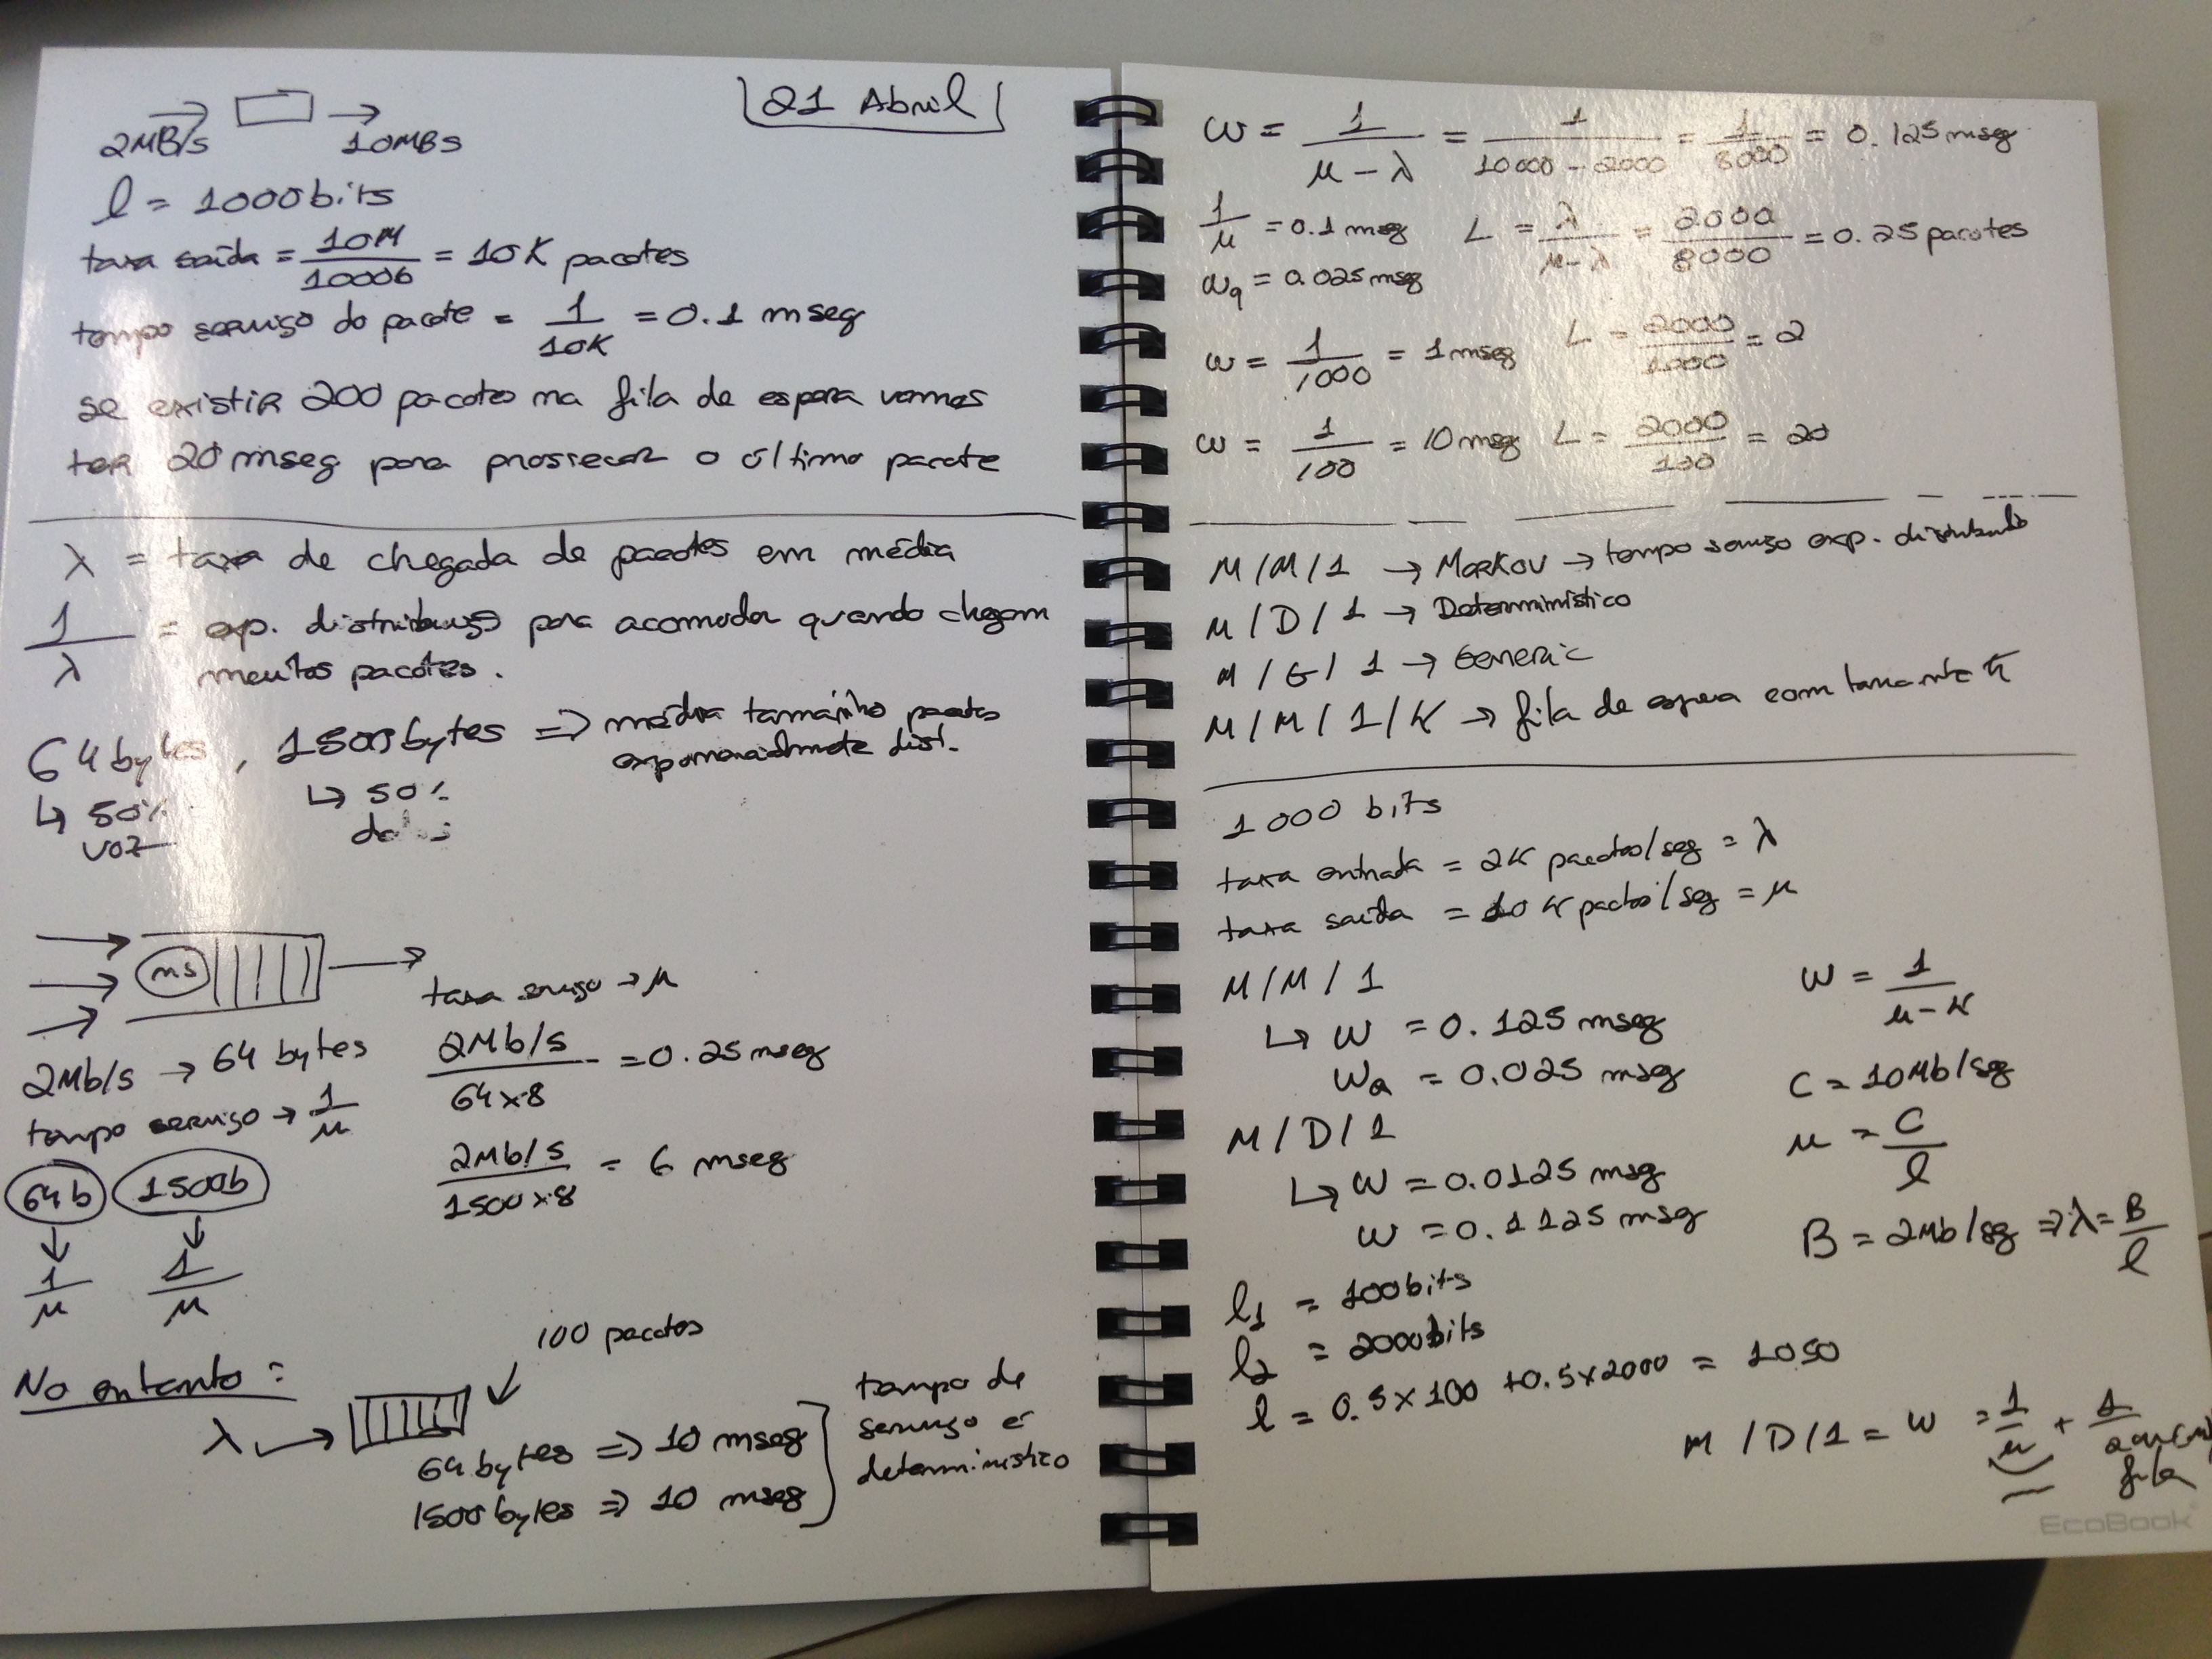 21 Abril
2MB/s 10MBs
l = 1000bits
taxa saída = 10M / 1000b = 10K pacotes
tempo serviço do pacote = 1 / 10K = 0.1 mseg
se existir 200 pacotes na fila de espera vamos
ter 20 mseg para processar o último pacote
λ = taxa de chegada de pacotes em média
1 / λ = exp. distribuição para acomodar quando chegam
muitos pacotes.
64 bytes, 1500 bytes => média tamanho pacotes
exponencialmente dist.
↳ 50% ↳ 50%
voz
ms
taxa serviço → μ
2Mb/s → 64 bytes
2Mb/s / 64x8 = 0.25 mseg
tempo serviço → 1 / μ
2Mb/s / 1500x8 = 6 mseg
64b 1500b
1 / μ 1 / μ
No entanto:
100 pacotes
λ →
64 bytes => 10 mseg
1500 bytes => 10 mseg
tempo de
serviço é
determinístico
w = 1 / μ - λ = 1 / 10000 - 2000 = 1 / 8000 = 0.125 mseg
1 / μ = 0.1 mseg L = λ / μ - λ = 2000 / 8000 = 0.25 pacotes
wq = 0.025 mseg
w = 1 / 1000 = 1 mseg L = 2000 / 1000 = 2
w = 1 / 100 = 10 mseg L = 2000 / 100 = 20
M/M/1 → Markov → tempo serviço exp. distribuído
M/D/1 → Determinístico
M/G/1 → Generic
M/M/1/K → fila de espera com tamanho K
1000 bits
taxa entrada = 2K pacotes/seg = λ
taxa saída = 10K pactos/seg = μ
M/M/1
↳ w = 0.125 mseg
wq = 0.025 mseg
M/D/1
↳ w = 0.0125 mseg
w = 0.1125 mseg
w = 1 / μ - λ
C = 10Mb/sg
μ = C / l
B = 2Mb/sg => λ = B / l
l1 = 100bits
l2 = 2000bits
l = 0.5x100 + 0.5x2000 = 1050
M/D/1 = w = 1 / μ +
fila
EcoBook